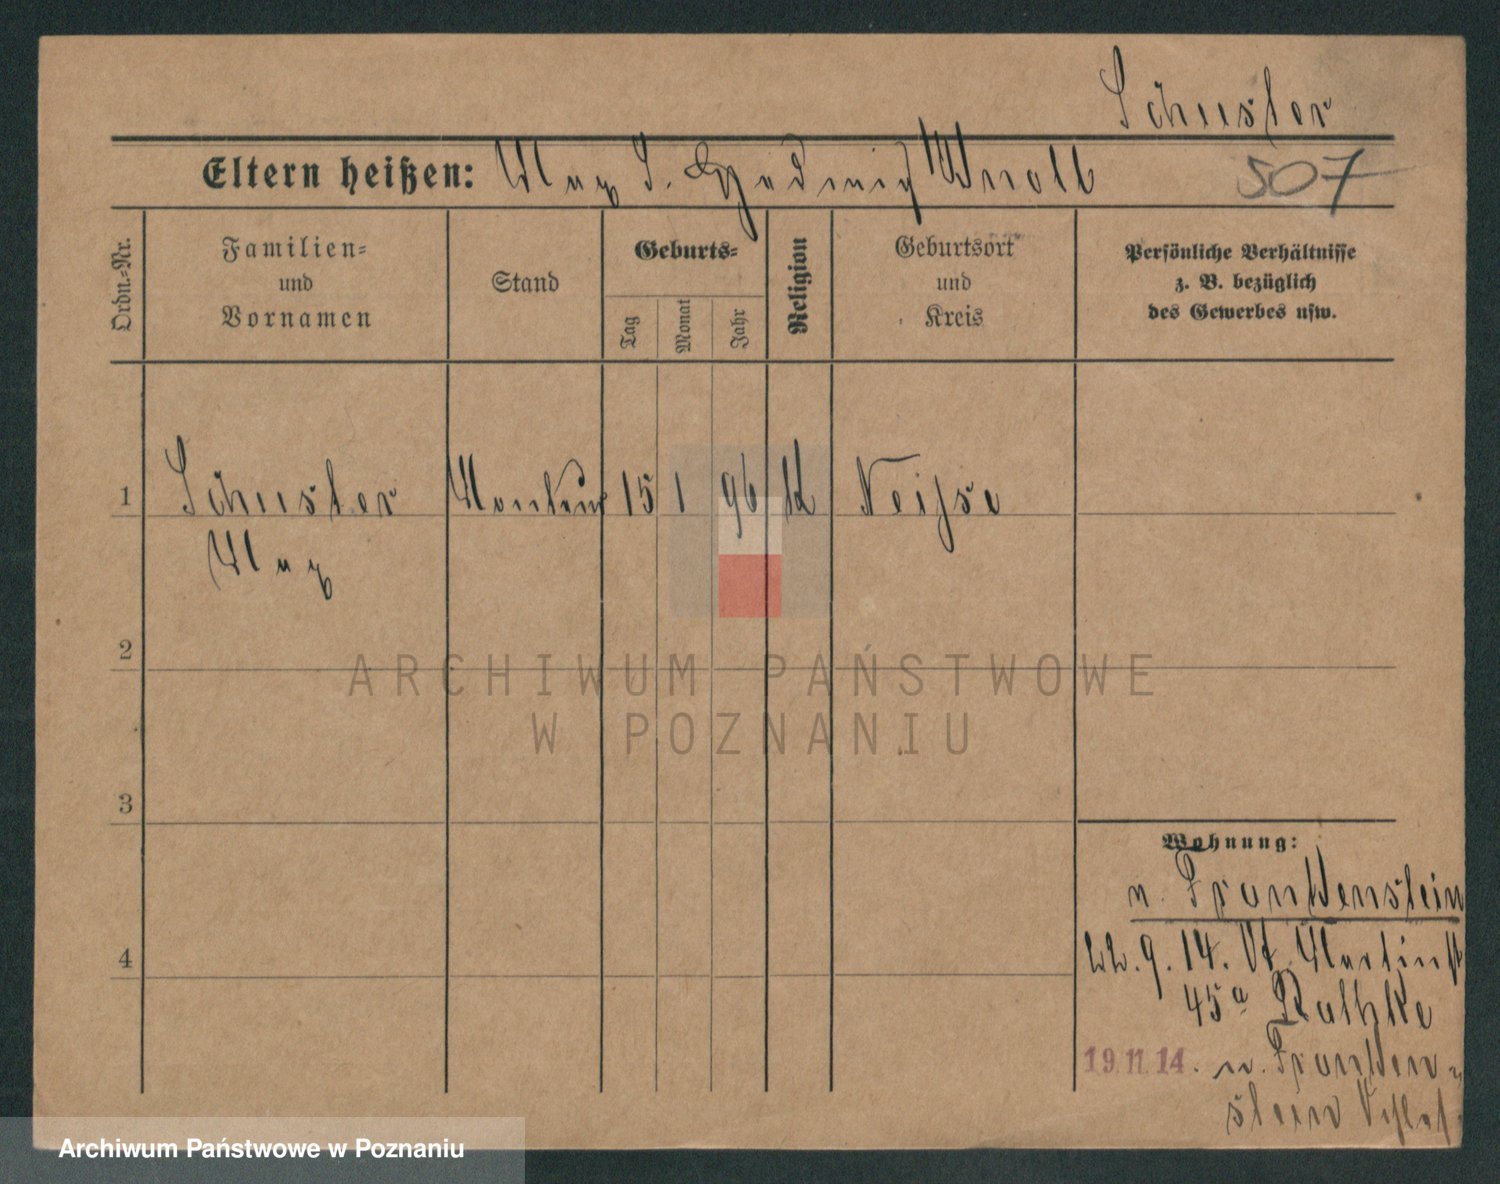 Schuster
Eltern heißen: Max S. Hedwig
507
Ordn.-Nr.
Familien-
und
Vornamen
Stand
Geburts-
Tag
Monat
Jahr
Religion
Geburtsort
und
Kreis
Persönliche Verhältnisse
z. B. bezüglich
des Gewerbes usw.
1 Schuster 15 1 96 K Neisse
Max
2
3
4
Wohnung:
n. Frankenstein
9. 14. St. Martinst
45a Rathke
19.11.14. n. Franken-
stein Schles
ARCHIWUM PAŃSTWOWE
W POZNANIU
Archiwum Państwowe w Poznaniu